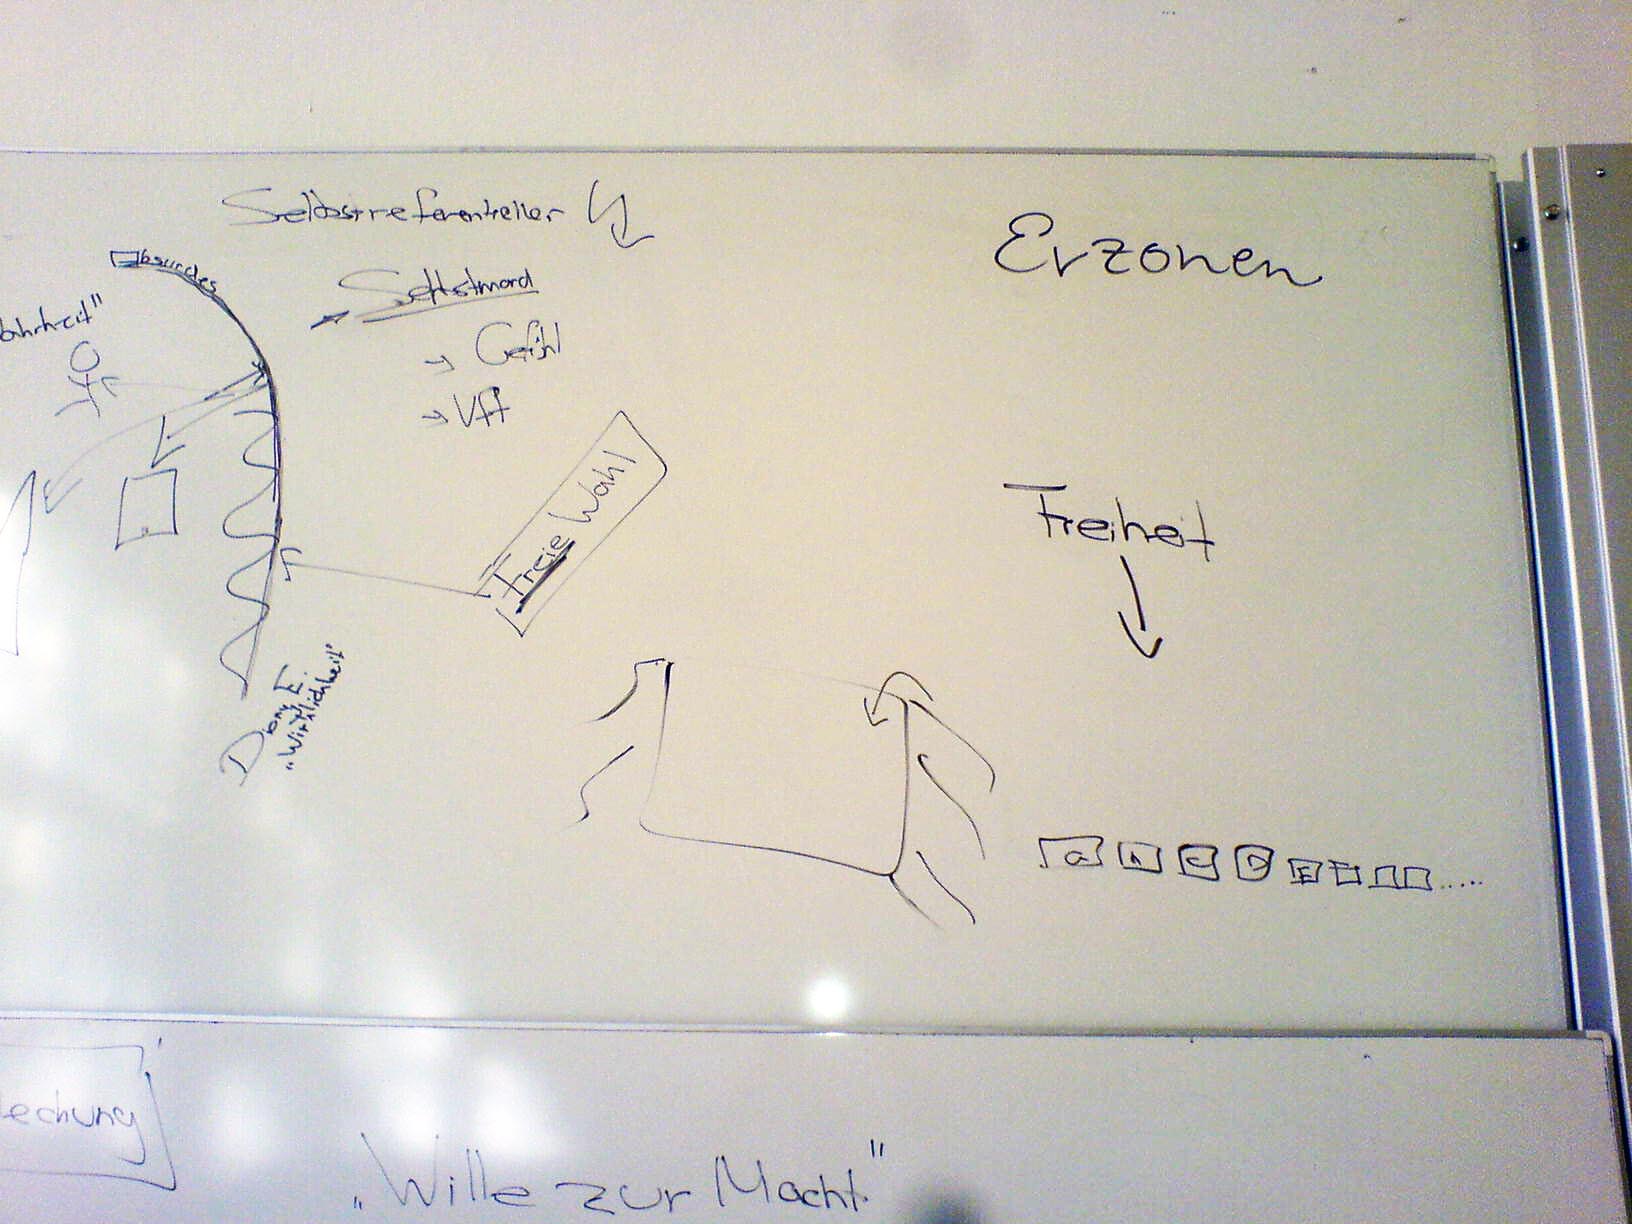 Selbstreferentieller
Erzonen
Absurdes
Selbstmord
ahrheit"
→ Gefühl
→ Vft
Freie Wahl
Freiheit
"Wirklichkeit"
a b c D E
.....
echung
„Wille zur Macht"